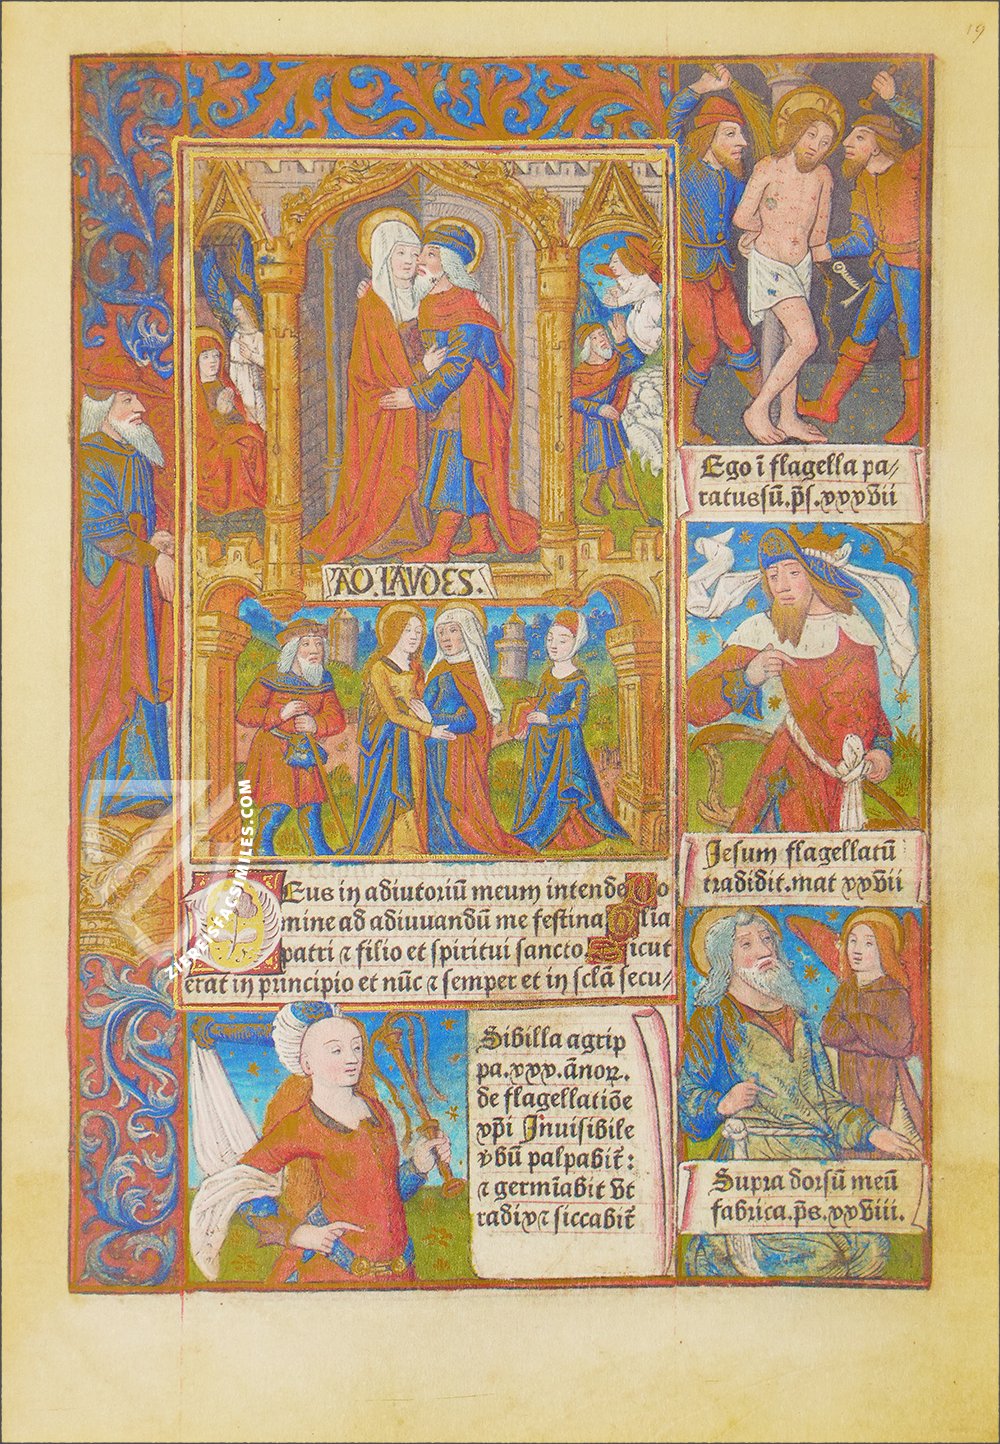 19
Ego ī flagella pa/
ratus sū. p̄s. xxxvii
AD. LAVDES.
Jesum flagellatū
tradidit. mat xxvii
Deus in adiutoriū meum intende Do
mine ad adiuvandū me festina Glia
patri ⁊ filio et spiritui sancto. Sicut
erat in principio et nūc ⁊ semper et in sclā secu/
Sibilla agrip
pa. xxx. ānoꝝ.
de flagellatiōe
xp̄i Inuisibile
vbū palpabit̄:
⁊ germīabit vt
radix ⁊ siccabit̄
Supra dorsū meū
fabrica. p̄s. xxviii.
ZIEREISFACSIMILES.COM